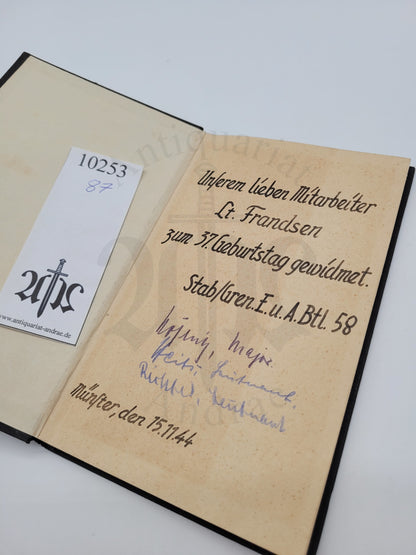 10253
87
www.antiquariat-andrae.de
antiquariat
Unserem lieben Mitarbeiter
Lt. Frandsen
zum 37. Geburtstag gewidmet.
Stab/Gren.E.u.A.Btl. 58
Major.
Leutnant.
Leutnant
Münster, den 15.11.44